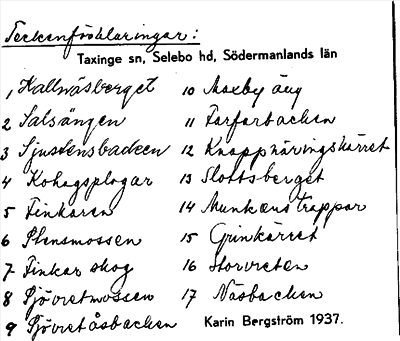 Teckenförklaringar:
Taxinge sn, Selebo hd, Södermanlands län
1 Hallnäsberget
2 Salsängen
3 Sjustensbacken
4 Kohagsplogar
5 Finkaren
6 Stensmossen
7 Finkar skog
8 Sjövretmossen
9 Sjövretåsbacken
10 Moxby äng
11 Farfarbacken
12 Knappnäringskärret
13 Slottsberget
14 Munkens trappor
15 Grinkärret
16 Storvreten
17 Näsbacken
Karin Bergström 1937.